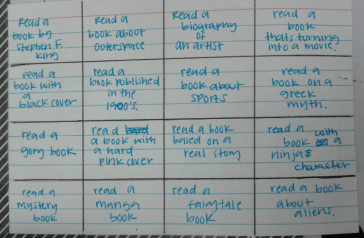 Read a
book by
Stephen F.
King
Read a
book about
outerspace
Read a
biography
of
an artist
read a
book
thats turning
into a movie.
read a
book with
a
black cover
read a
book published
in the
1900's.
read a
book about
sports
read a
book on a
greek
myth.
read a
gory book
read
a book with
a hard
pink cover
read a book
based on a
real story
read a
book with a
ninja
character
read a
mystery
book
read a
manga
book
read a
fairytale
book
read a book
about
aliens.